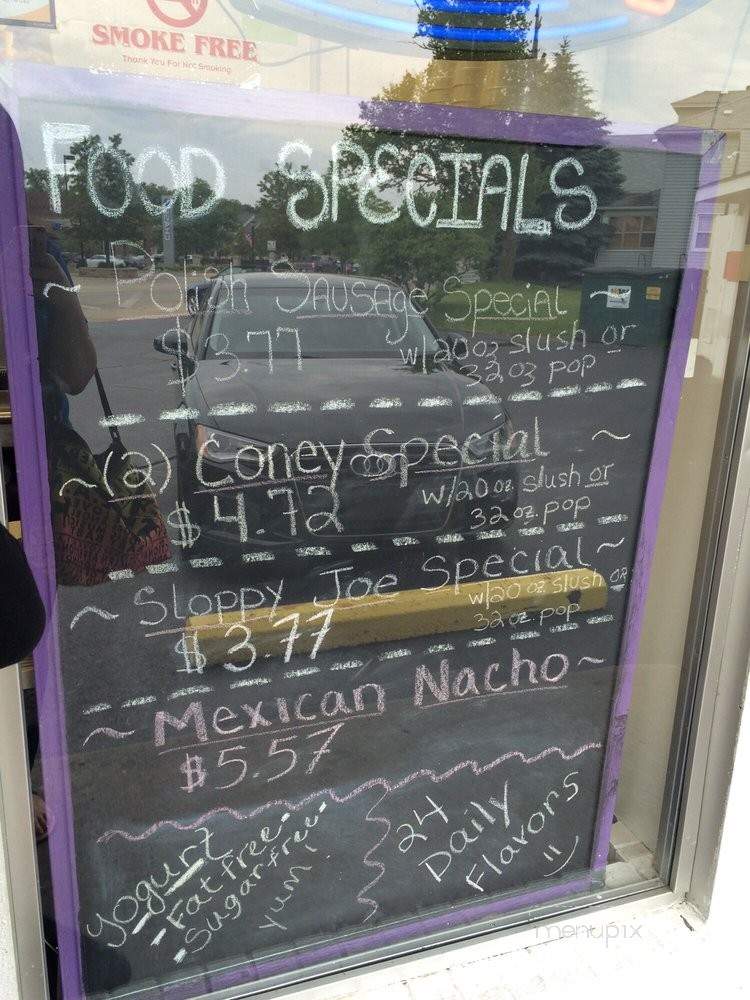 SMOKE FREE
Thank You For Not Smoking
FOOD SPECIALS
~ Polish Sausage Special ~
$3.77 w/20oz slush or
32oz pop
~(2) Coney Special ~
$4.72 w/20oz slush or
32oz.pop
~ Sloppy Joe Special ~
$3.77 w/20 oz slush or
32oz.pop
~ Mexican Nacho ~
$5.57
yogurt
- Fat free -
- Sugar free -
yum!
24
Daily
Flavors
menupix